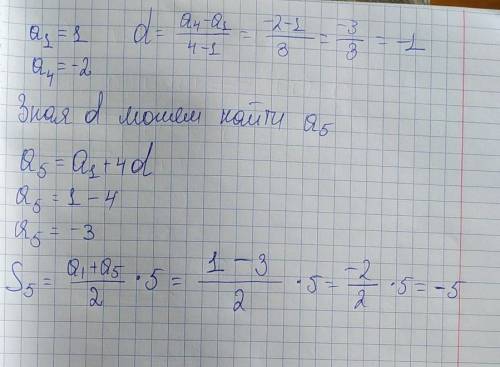 a₁ = 1
a₄ = -2
d = (a₄ - a₁)/(4 - 1) = (-2 - 1)/3 = -3/3 = -1
Зная d можем найти a₅
a₅ = a₁ + 4d
a₅ = 1 - 4
a₅ = -3
S₅ = (a₁ + a₅)/2 · 5 = (1 - 3)/2 · 5 = -2/2 · 5 = -5